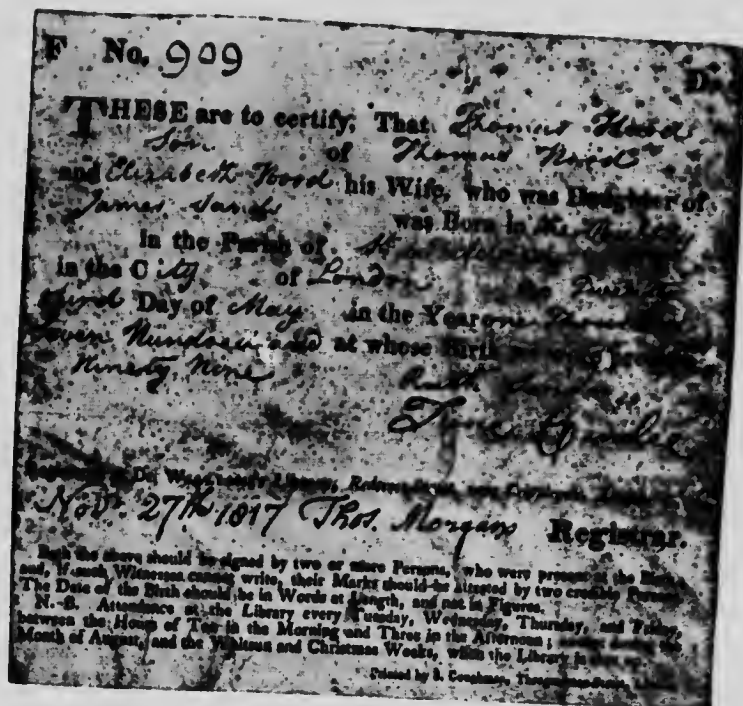 F No. 909 D.
THESE are to certify, That Thomas Hood
Son of Thomas Hood
and Elizabeth Hood his Wife, who was Daughter of
James Sands was Born in the Poultry
in the Parish of St
in the City of London
third Day of May in the Year one Thousand
Seven Hundred and at whose Birth
Ninety Nine
Registered at Dr. Williams's Library, Redcross-street, near Cripplegate, London
Novr. 27th 1817 Thos. Morgan Registrar.
the above should be signed by two or more Persons, who were present at the Birth,
and, if such Witnesses cannot write, their Marks should be attested by two credible Persons.
The Date of the Birth should be in Words at Length, and not in Figures.
N. B. Attendance at the Library every Tuesday, Wednesday, Thursday, and Friday,
between the Hours of Ten in the Morning and Three in the Afternoon; the
Month of August, and the Whitsun and Christmas Weeks, when the Library is
Printed by